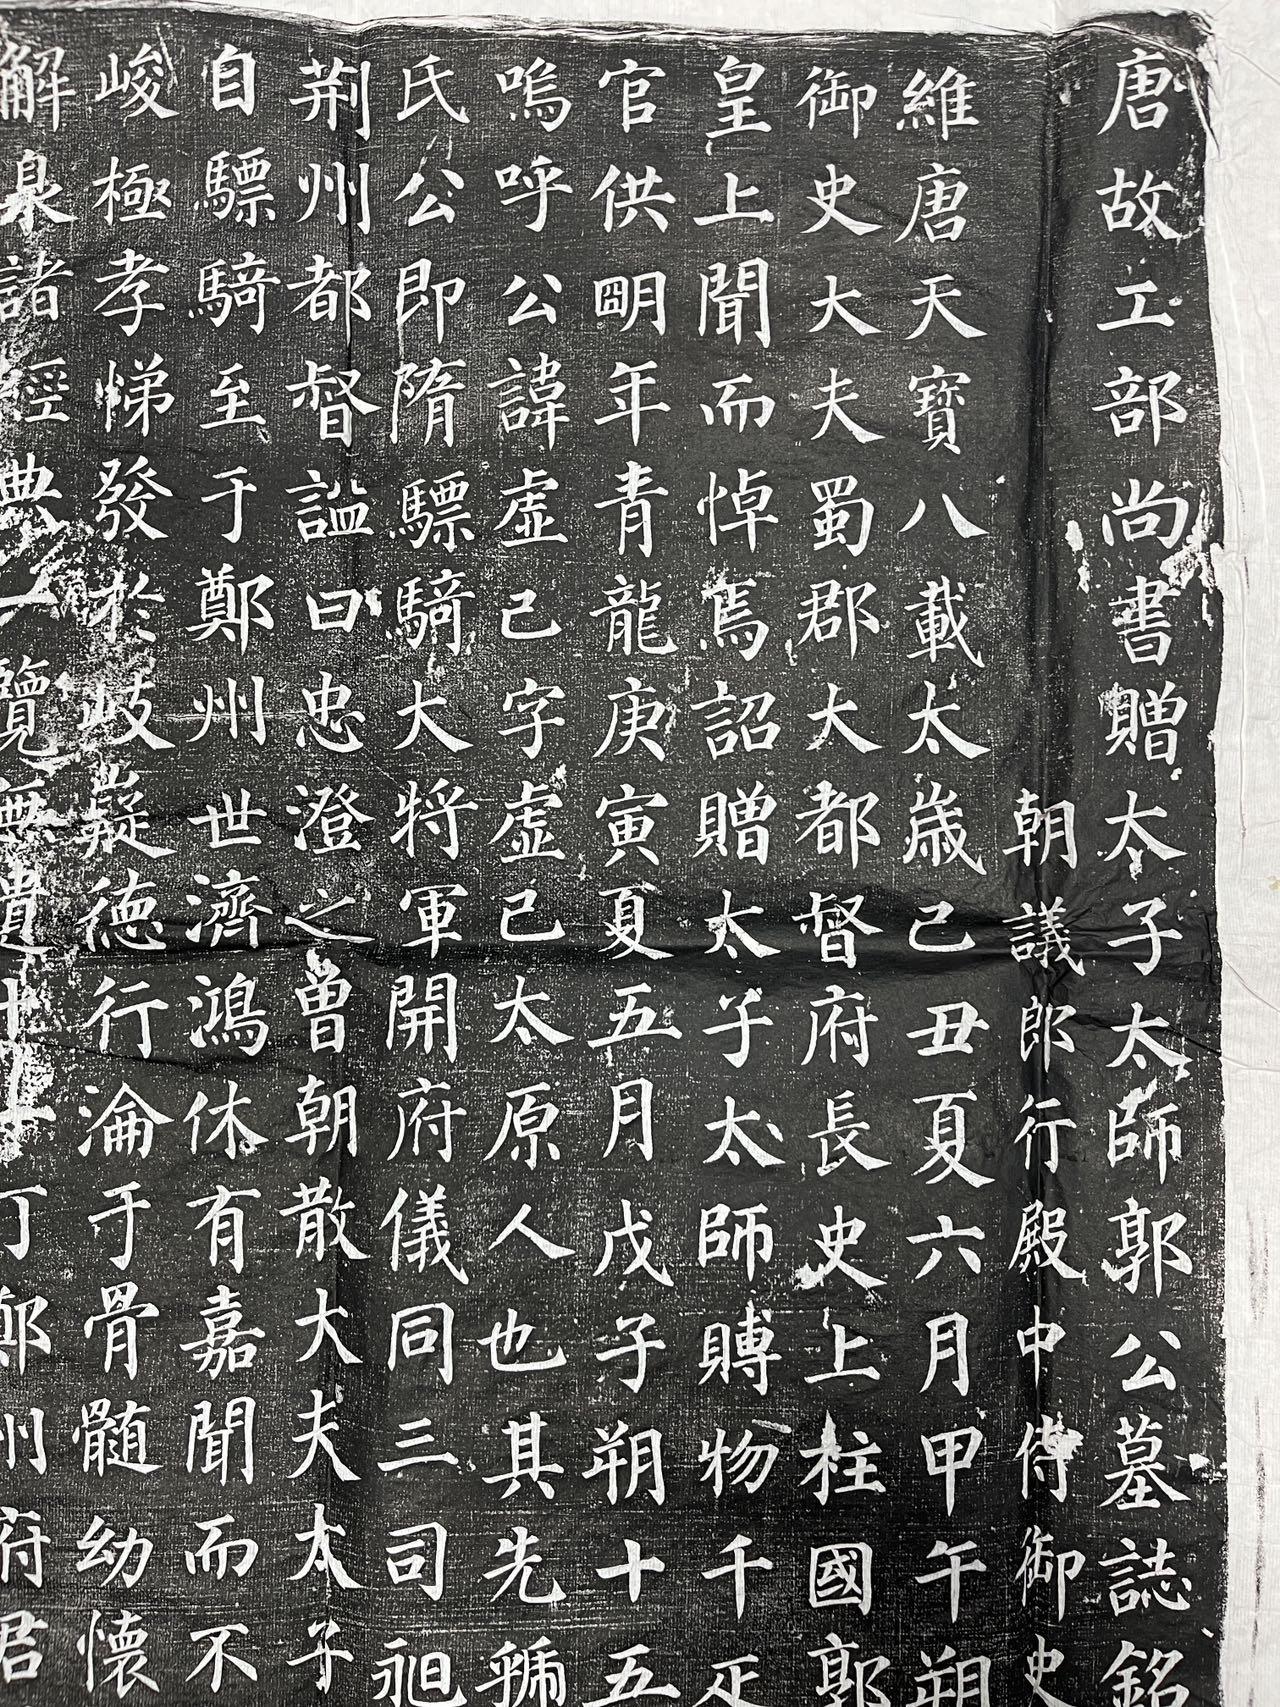 唐故工部尚書贈太子太師郭公墓誌銘
朝議郎行殿中侍御史
維唐天寶八載太歲己丑夏六月甲午朔
御史大夫蜀郡大都督府長史上柱國郭
皇上聞而悼焉詔贈太子太師賻物千疋
官供明年青龍庚寅夏五月戊子朔十五
嗚呼公諱虛己字虛己太原人也其先虢
氏公即隋驃騎大將軍開府儀同三司昶
荆州都督諡曰忠澄之曾朝散大夫太子
自驃騎至于鄭州世濟鴻休有嘉聞而不
峻極孝悌發於岐嶷德行淪于骨髓幼懷
解臬諸經典一覽無遺十一丁鄭州府君